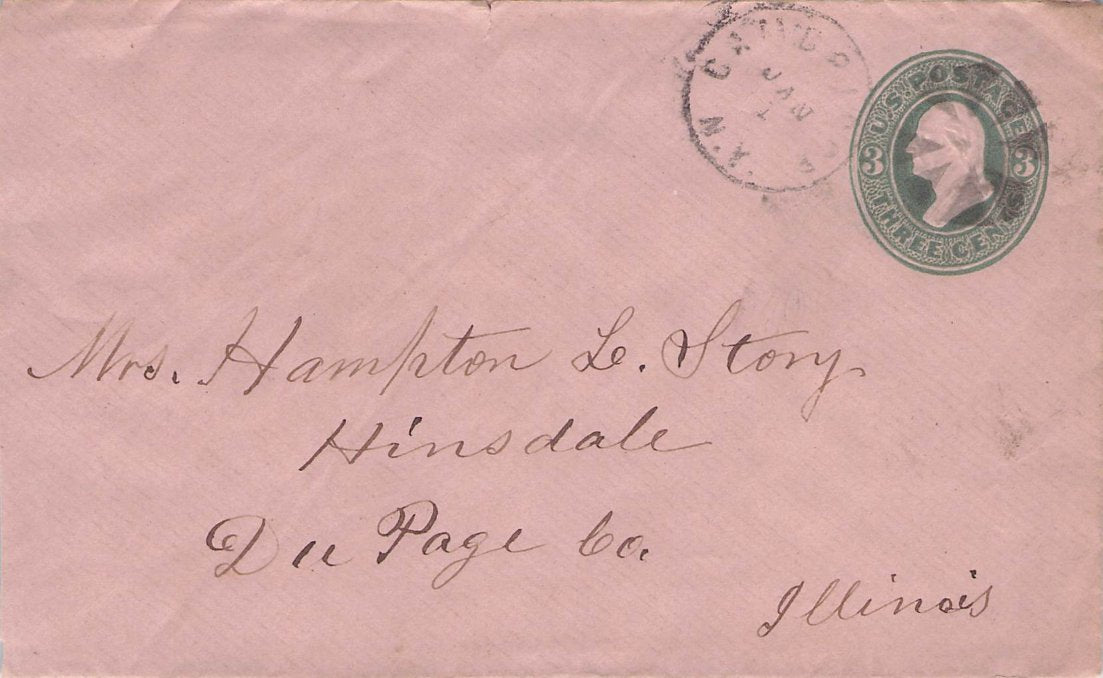 CAMBRIDGE
N.Y.
JAN
1
U.S. POSTAGE
3 3
THREE CENTS
Mrs. Hampton L. Story
Hinsdale
Du Page Co.
Illinois